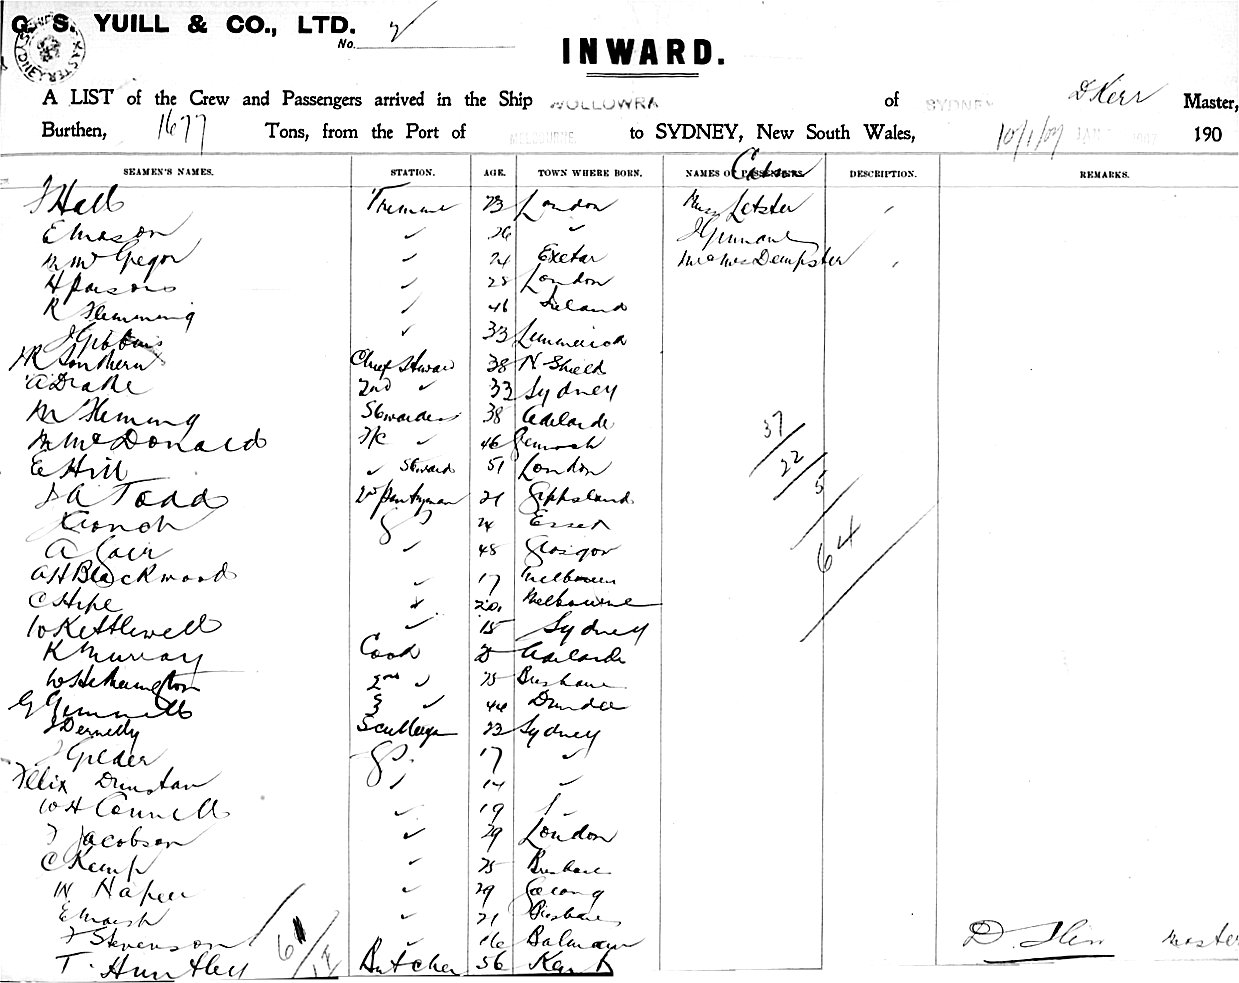 G. S. YUILL & CO., LTD.
No. 2
INWARD.
A LIST of the Crew and Passengers arrived in the Ship WOLLOWRA of SYDNEY D Kerr Master,
Burthen, 1677 Tons, from the Port of MELBOURNE to SYDNEY, New South Wales, 10/1/07 190
SEAMEN'S NAMES. STATION. AGE. TOWN WHERE BORN. NAMES OF PASSENGERS. DESCRIPTION. REMARKS.
J Hall 23 London Miss
E Mason ✓ 26 ✓
M McGregor ✓ 24 Exeter Mr & Mrs Dempster
H Parsons ✓ 28 London
R Flemming ✓ 46 Ireland
J Gibbons ✓ 33
HR Southern Chief Steward 38 N Shield
A Drake 2nd ✓ 33 Sydney
M Fleming Stewardess 38 Adelaide
M McDonald F/C ✓ 46
E Hill ✓ Steward 51 London
J A Todd 2nd Pantryman 21 Gippsland
24 Essex
A ✓ 48 Glasgow
A H Blackwood ✓ 17 Melbourne
C Hipe 20 Melbourne
W Kettlewell ✓ 18 Sydney
K Murray Cook Adelaide
W Hetherington 2nd ✓ 25 Brisbane
G Gemmell 3 ✓ 44 Dundee
J Dennelly 22 Sydney
J Gilder 17 ✓
Felix Dunstan ✓ 14 ✓
W H Connell ✓ 19
J Jacobson ✓ 29 London
C Kemp ✓ 25 Brisbane
W Napier ✓ 29 Geelong
E Marsh ✓ 21 Brisbane
F Stevenson 16 Balmain
T. Huntley Butcher 56 Kent
37
22
5
64
Master